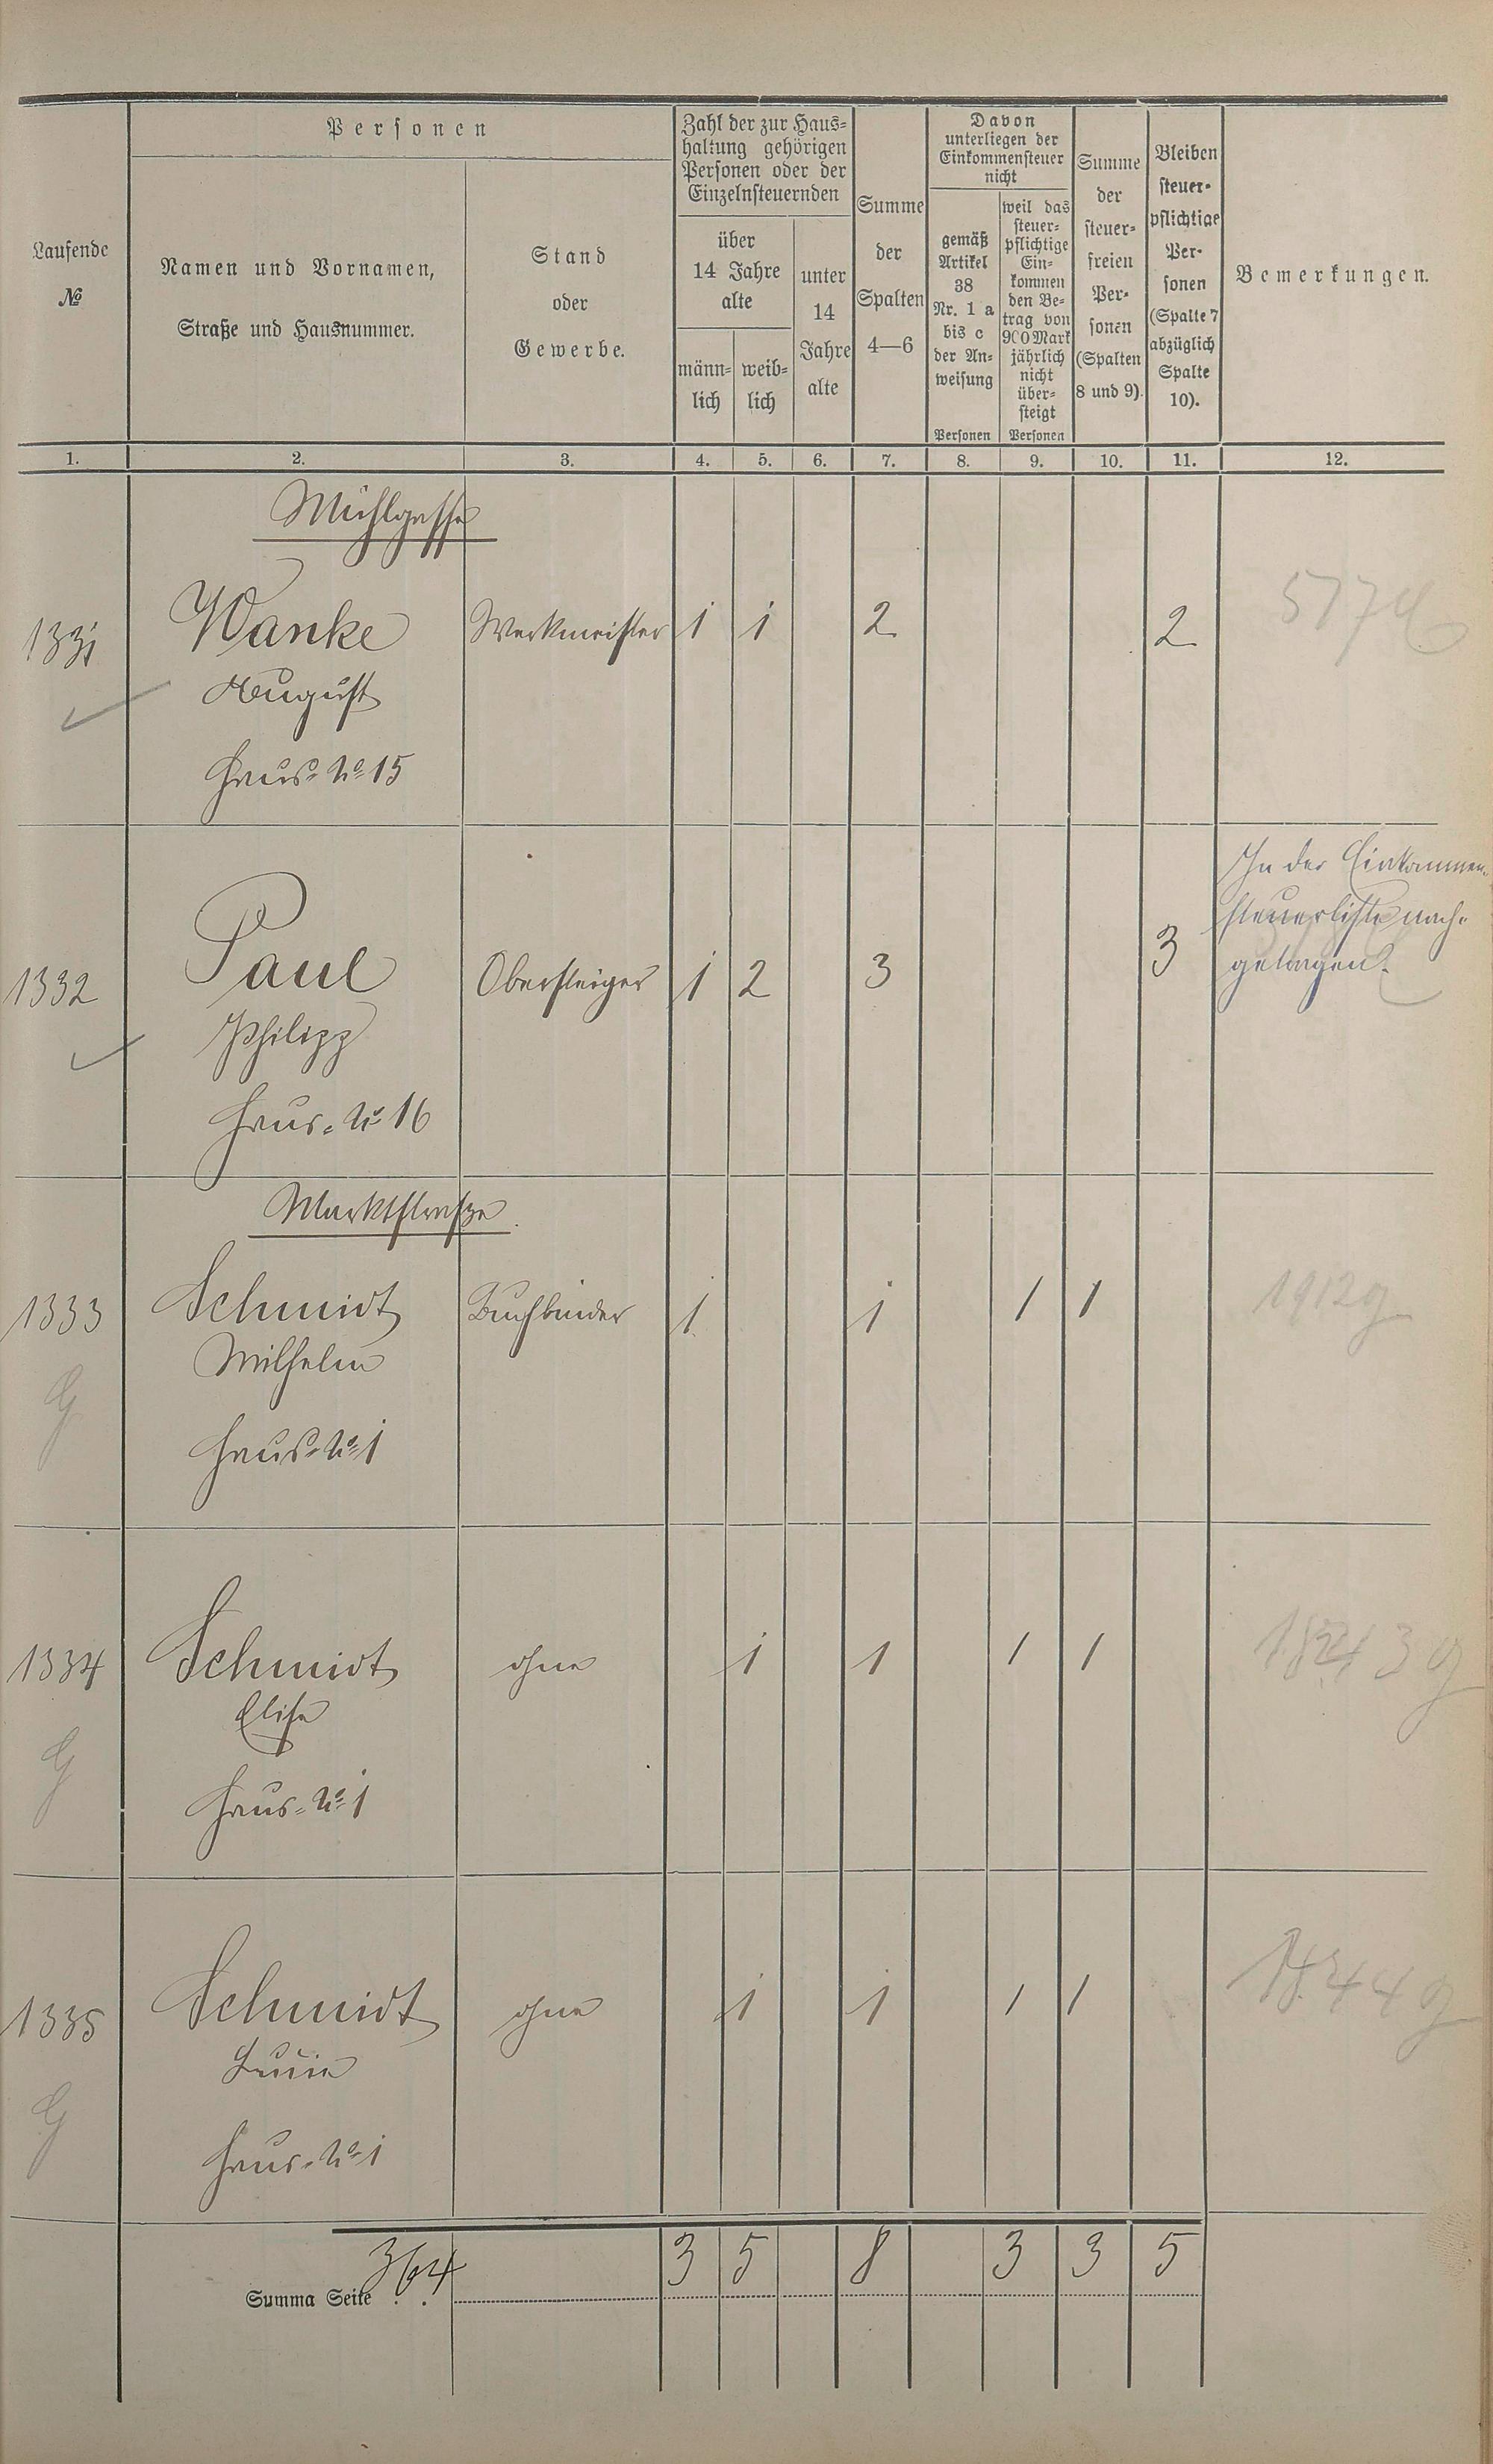 Personen
Zahl der zur Haus=
haltung gehörigen
Personen oder der
Einzelnsteuernden
Davon
unterliegen der
Einkommensteuer
nicht
Laufende
№
Namen und Vornamen,
Straße und Hausnummer.
Stand
oder
Gewerbe.
über
14 Jahre
alte
männ=
lich
weib=
lich
unter
14
Jahre
alte
Summe
der
Spalten
4—6
gemäß
Artikel
38
Nr. 1 a
bis c
der An=
weisung
Personen
weil das
steuer=
pflichtige
Ein=
kommen
den Be=
trag von
900 Mark
jährlich
nicht
über=
steigt
Personen
Summe
der
steuer=
freien
Per=
sonen
(Spalten
8 und 9).
Bleiben
steuer=
pflichtige
Per=
sonen
(Spalte 7
abzüglich
Spalte
10).
Bemerkungen.
1. 2. 3. 4. 5. 6. 7. 8. 9. 10. 11. 12.
Mühlgasse
1331 Wanke Werkmeister 1 1 2 2
August
Haus=No 15
1332 Paul Obersteiger 1 2 3 3
In der Einkommen=
steuerliste nach=
getragen.
Philipp
Haus=No 16
Marktstraße
1333 Schmidt Buchbinder 1 1 1 1 1912 g
Wilhelm
G
Haus=No 1
1334 Schmidt ohne 1 1 1 1
Elise
G
Haus=No 1
1335 Schmidt ohne 1 1 1 1
G
Haus=No 1
Summa Seite 364 3 5 8 3 3 5